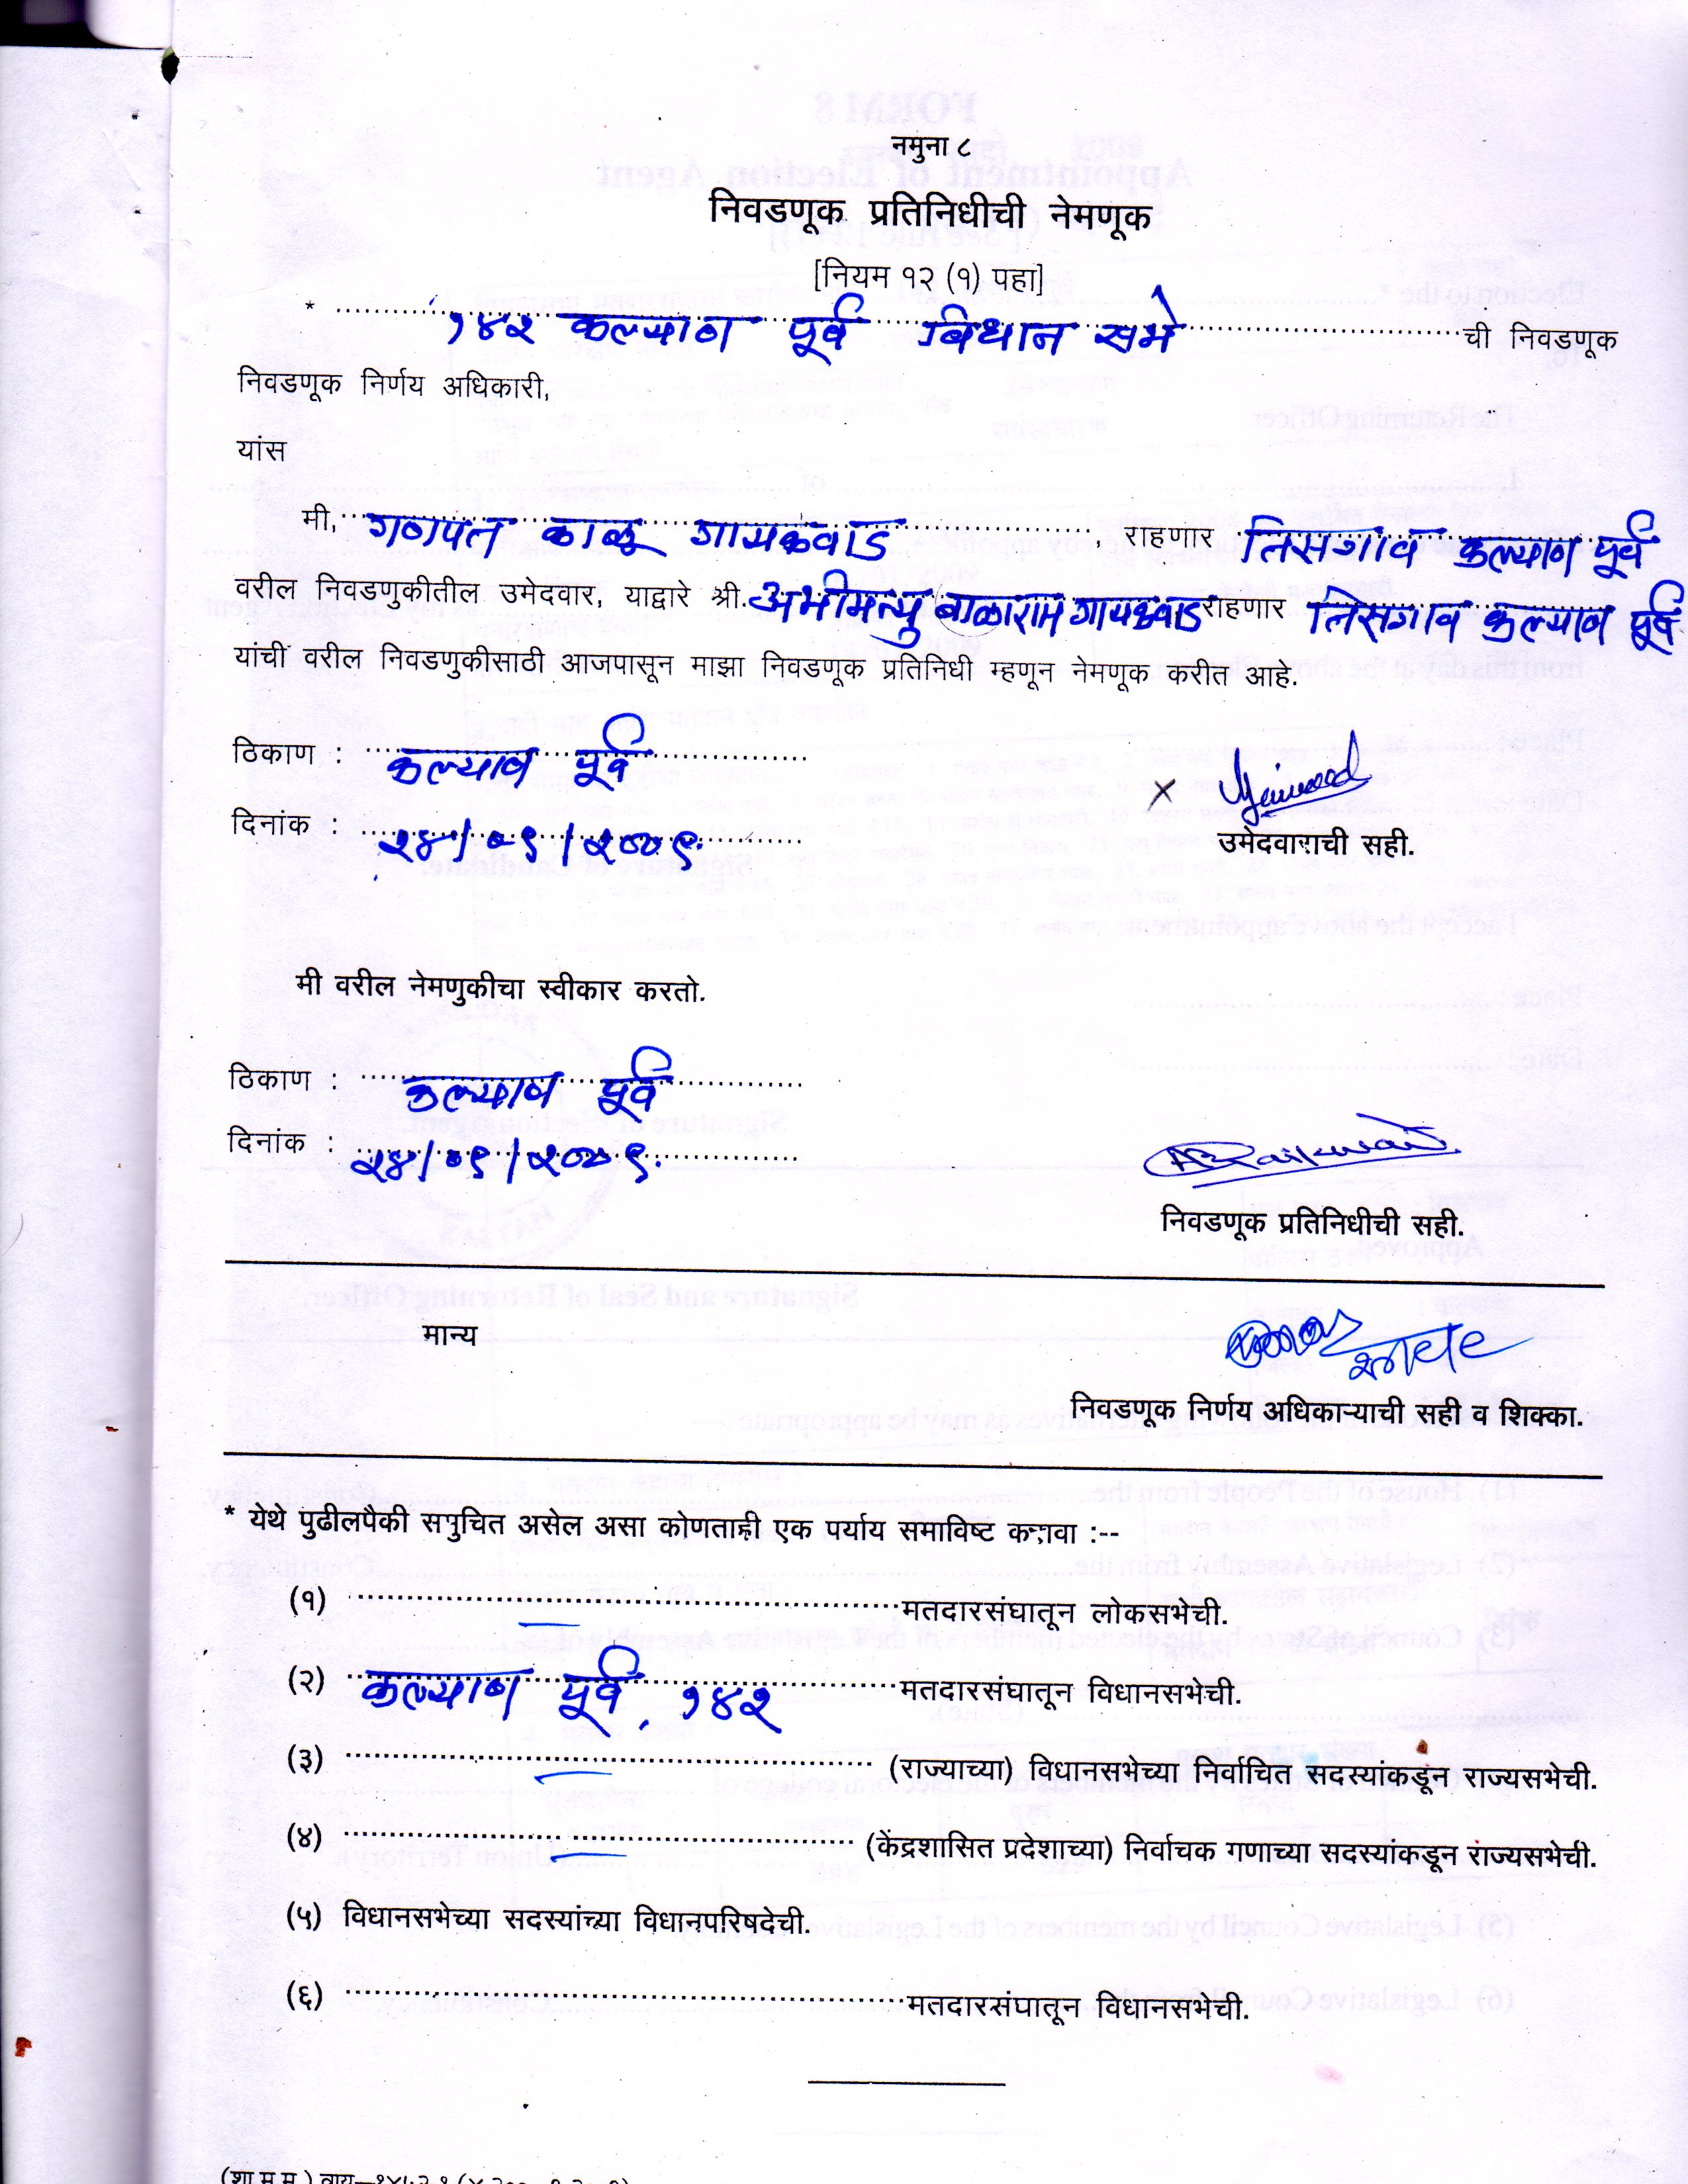 नमुना ८
निवडणूक प्रतिनिधीची नेमणूक
[नियम १२ (१) पहा]
* १४२ कल्याण पूर्व विधान सभे ची निवडणूक
निवडणूक निर्णय अधिकारी,
यांस
मी, गणपत काळू गायकवाड , राहणार तिसगाव कल्याण पूर्व
वरील निवडणुकीतील उमेदवार, याद्वारे श्री. अभीमन्यु बाळाराम गायकवाड राहणार तिसगाव कल्याण पूर्व
यांची वरील निवडणुकीसाठी आजपासून माझा निवडणूक प्रतिनिधी म्हणून नेमणूक करीत आहे.
ठिकाण : कल्याण पूर्व
दिनांक : २४/०९/२००९.
उमेदवाराची सही.
मी वरील नेमणुकीचा स्वीकार करतो.
ठिकाण : कल्याण पूर्व
दिनांक : २४/०९/२००९.
निवडणूक प्रतिनिधीची सही.
मान्य
निवडणूक निर्णय अधिकाऱ्याची सही व शिक्का.
* येथे पुढीलपैकी समुचित असेल असा कोणताही एक पर्याय समाविष्ट करावा :--
(१) मतदारसंघातून लोकसभेची.
(२) कल्याण पूर्व, १४२ मतदारसंघातून विधानसभेची.
(३) (राज्याच्या) विधानसभेच्या निर्वाचित सदस्यांकडून राज्यसभेची.
(४) (केंद्रशासित प्रदेशाच्या) निर्वाचक गणाच्या सदस्यांकडून राज्यसभेची.
(५) विधानसभेच्या सदस्यांच्या विधानपरिषदेची.
(६) मतदारसंघातून विधानसभेची.